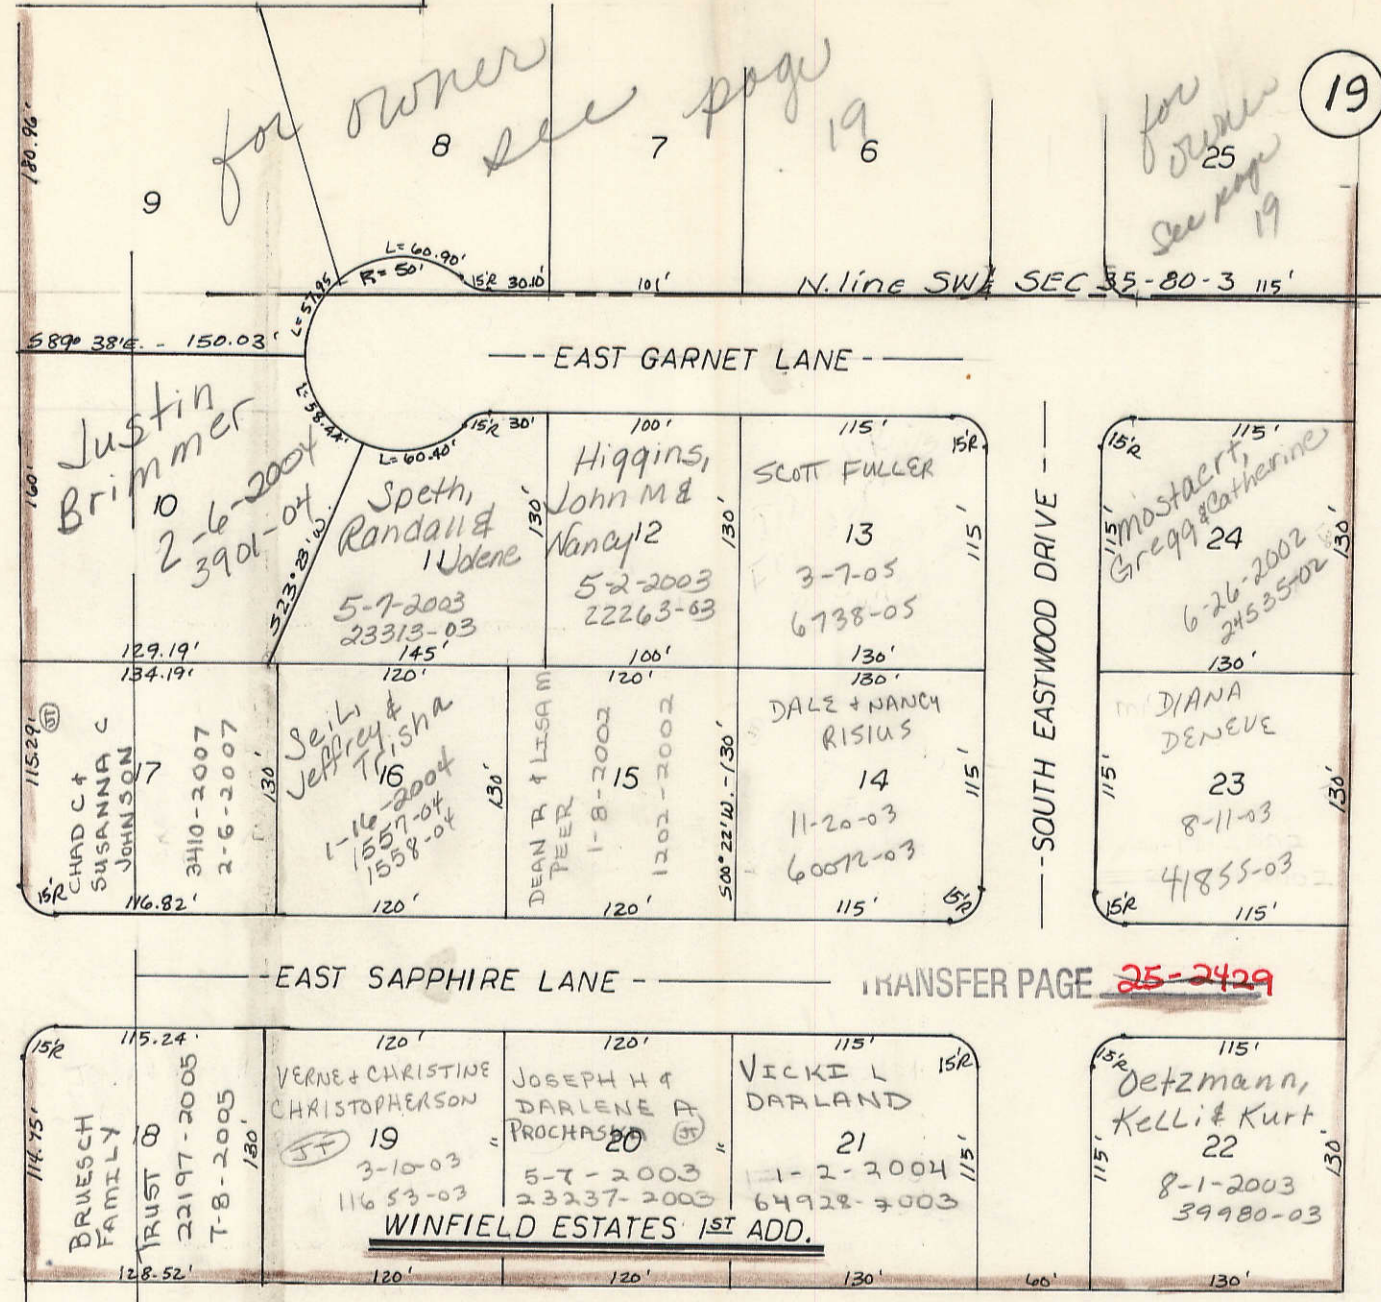 19
for owner see page 19
for
owner
see page
19
180.96'
9
8
7
6
25
L=60.90'
R=50'
15'R 30.10'
101'
N. line SW¼ SEC 35-80-3 115'
L=57.95
S89° 38'E. - 150.03'
EAST GARNET LANE
L=58.44'
L=60.40'
15'R 30'
100'
115'
15'R
15'R
115'
160'
Justin
Brimmer
10
2-6-2004
3901-04
S23° 23' W.
129.19'
Speth,
Randall &
11 Udene
5-7-2003
23313-03
145'
130'
Higgins,
John M &
Nancy 12
5-2-2003
22263-03
100'
130'
SCOTT FULLER
13
3-7-05
6738-05
130'
115'
SOUTH EASTWOOD DRIVE
115'
Mostaert,
Gregg & Catherine
24
6-26-2002
24535-02
130'
130'
134.19'
115.29'
JT
CHAD C &
SUSANNA C
JOHNSON
17
3410-2007
2-6-2007
130'
15'R
116.82'
120'
Seils,
Jeffrey &
Trisha
16
1-16-2004
1557-04
1558-04
130'
120'
120'
DEAN R & LISA M
PEER
1-8-2002
15
1202-2002
S00° 22' W. - 130'
120'
130'
DALE & NANCY
RISIUS
14
11-20-03
60072-03
115'
115'
15'R
DIANA
DENEVE
23
8-11-03
41855-03
115'
130'
15'R
115'
EAST SAPPHIRE LANE
TRANSFER PAGE 25-2429
15'R
115.24'
114.75'
BRUESCH
FAMILY
TRUST 18
22197-2005
7-8-2005
130'
128.52'
120'
VERNE & CHRISTINE
CHRISTOPHERSON
JT 19 "
3-10-03
11653-03
120'
120'
JOSEPH H &
DARLENE A
PROCHASKA JT
20 "
5-7-2003
23237-2003
120'
115'
15'R
VICKI L
DARLAND
21
1-2-2004
64928-2003
115'
130'
60'
15'R
115'
Oetzmann,
Kelli & Kurt
22
8-1-2003
39980-03
115'
130'
130'
WINFIELD ESTATES 1ST ADD.